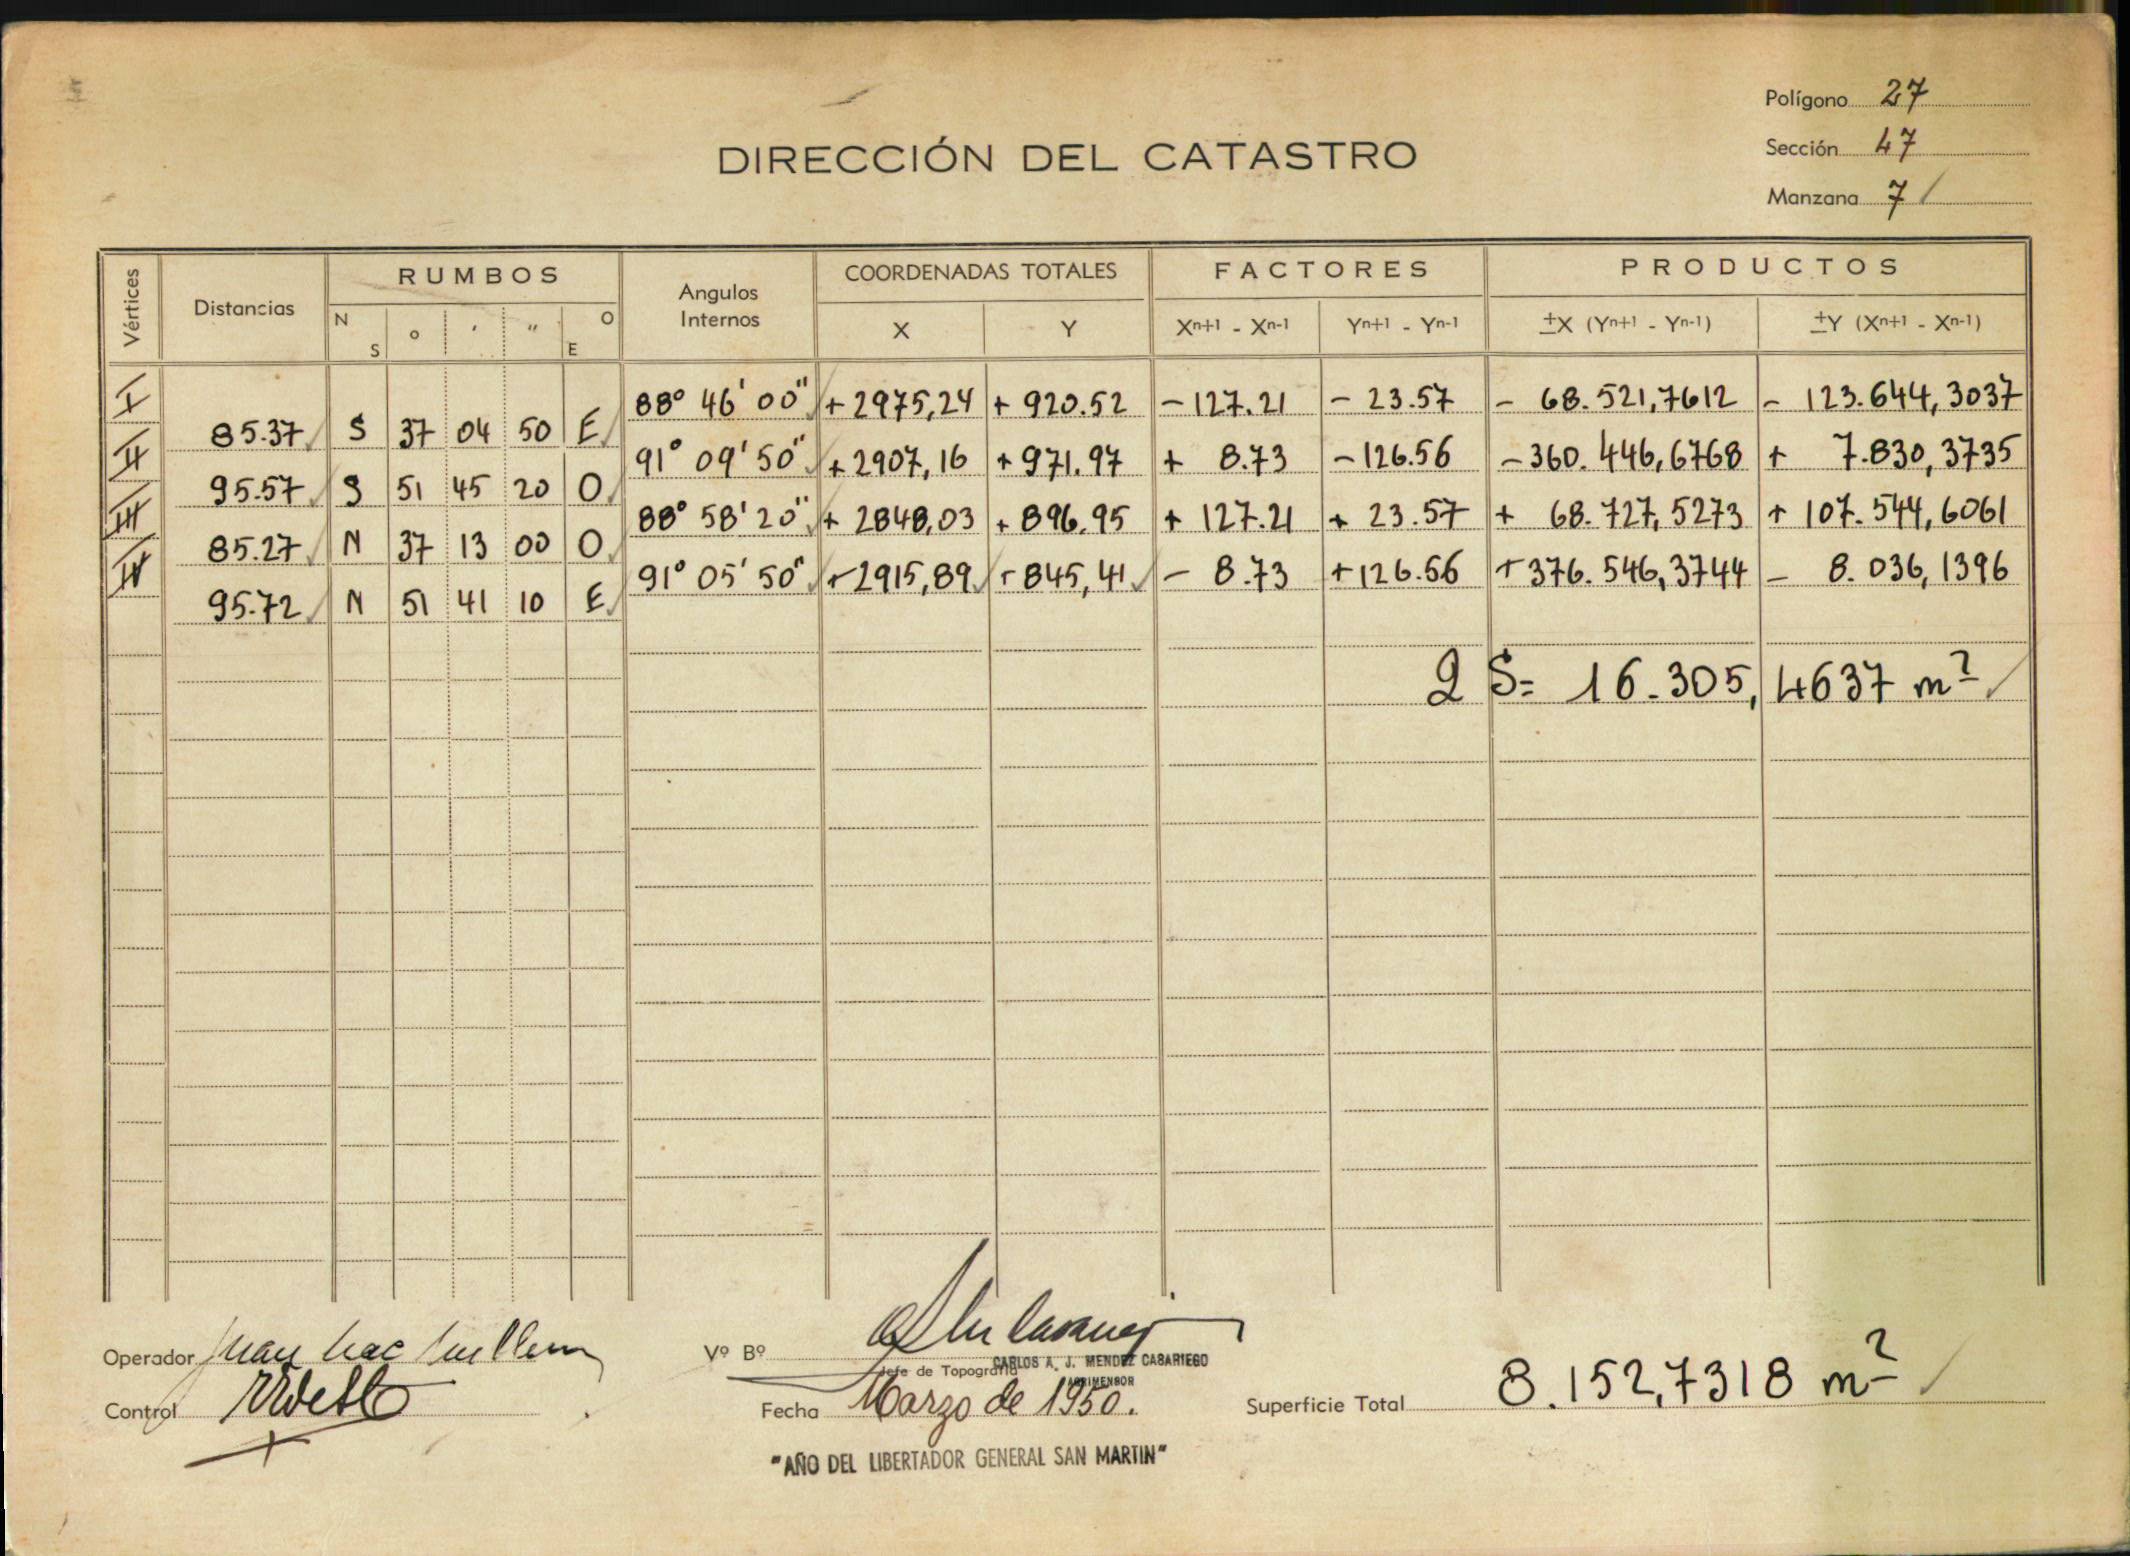 Polígono 27
Sección 47
Manzana 7
DIRECCIÓN DEL CATASTRO
Vértices Distancias RUMBOS Angulos Internos COORDENADAS TOTALES FACTORES PRODUCTOS
N S ° ' " O E X Y Xn+1 - Xn-1 Yn+1 - Yn-1 ±X (Yn+1 - Yn-1) ±Y (Xn+1 - Xn-1)
I 88° 46' 00" +2975,24 + 920.52 -127.21 - 23.57 - 68.521,7612 - 123.644,3037
85.37 S 37 04 50 E
II 91° 09' 50" +2907,16 +971.97 + 8.73 -126.56 -360.446,6768 + 7.830,3735
95.57 S 51 45 20 O
III 88° 58' 20" + 2848,03 + 896.95 + 127.21 + 23.57 + 68.727,5273 + 107.544,6061
85.27 N 37 13 00 O
IV 91° 05' 50" +2915,89 +845,41 - 8.73 +126.56 +376.546,3744 - 8.036,1396
95.72 N 51 41 10 E
2 S= 16.305,4637 m²
Operador Juan Mac
Control
Vº Bº
Jefe de Topografía
CARLOS A. J. MENDEZ CASARIEGO
AGRIMENSOR
Fecha Marzo de 1950.
Superficie Total 8.152,7318 m²
"AÑO DEL LIBERTADOR GENERAL SAN MARTIN"